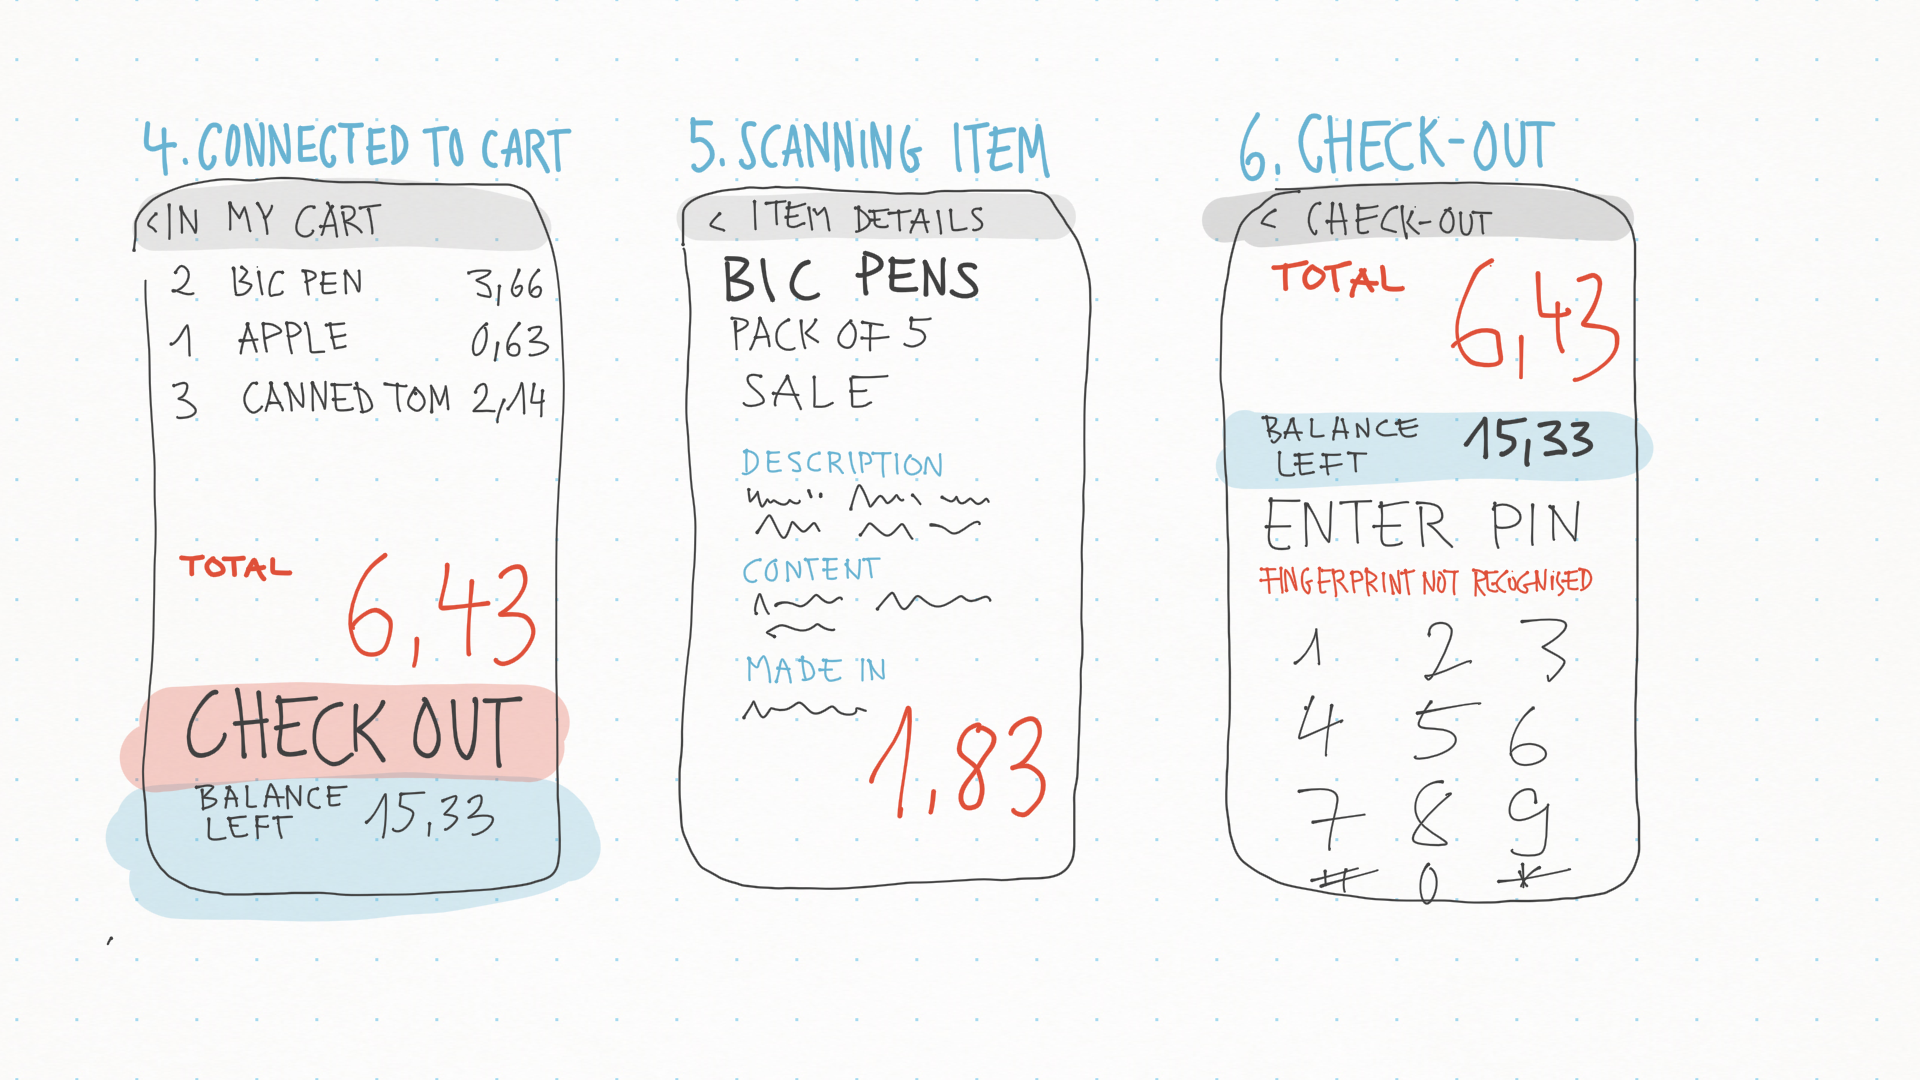 4. CONNECTED TO CART
< IN MY CART
2 BIC PEN 3,66
1 APPLE 0,63
3 CANNED TOM 2,14
TOTAL 6,43
CHECK OUT
BALANCE LEFT 15,33
5. SCANNING ITEM
< ITEM DETAILS
BIC PENS
PACK OF 5
SALE
DESCRIPTION
CONTENT
MADE IN
1,83
6. CHECK-OUT
< CHECK-OUT
TOTAL 6,43
BALANCE LEFT 15,33
ENTER PIN
FINGERPRINT NOT RECOGNISED
1 2 3
4 5 6
7 8 9
# 0 *